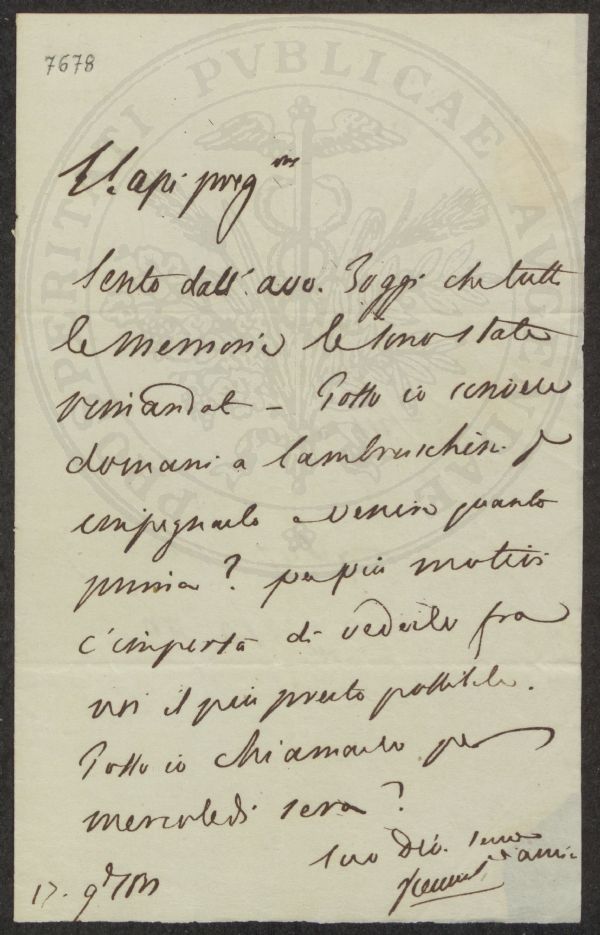 7678
PROSPERITATI PVBLICAE AVGENDAE
preg.mo
Sento dall'avv. Poggi che tutte
le memorie le sono state
rimandate – Posso io scrivere
domani a Lambruschini p
impegnarlo a venire quanto
prima? per più motivi
c'importa di vederlo fra
noi il più presto possibile.
Posso io chiamarlo per
mercoledì sera?
Suo dev. servo
e amico
17. 9bre